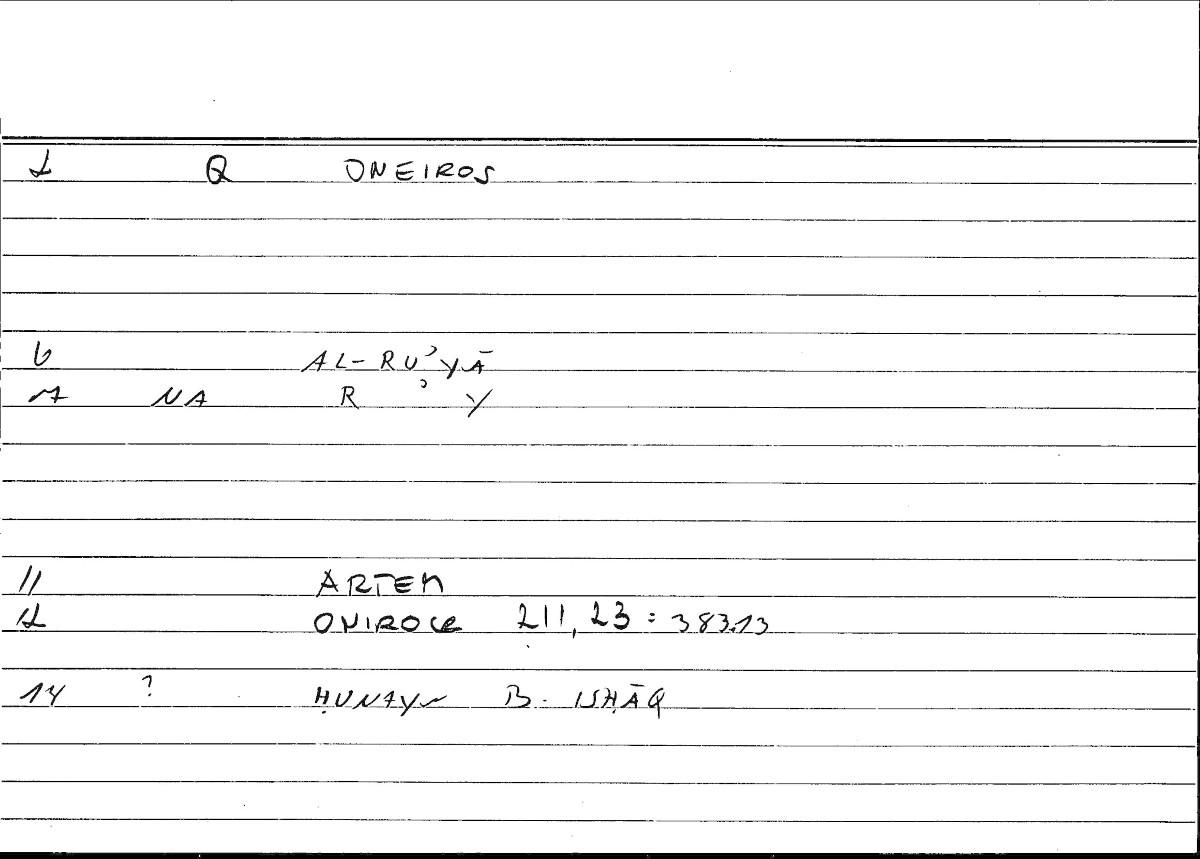 2 Q ONEIROS
6 AL-RUʾYĀ
7 NA R ʾ Y
11 ARTEM
12 ONIROCR 211,23 = 383.13
14 ? ḤUNAYN B. ISḤĀQ